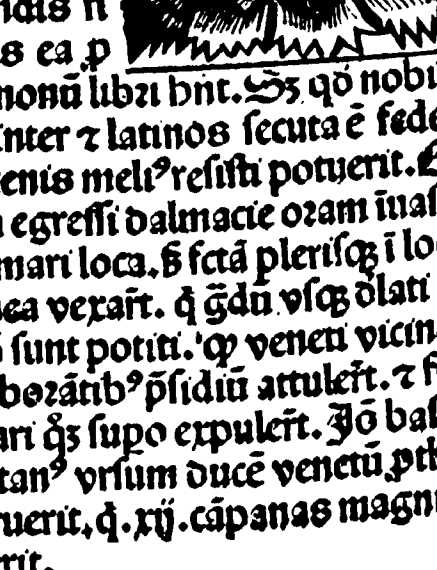 s ea ꝓ
nonū libri hn̄t. Sꝫ qḋ nobi
nter ⁊ latinos ſecuta ē fede
enis meliꝰ reſiſti potuerit.
egreſſi dalmacie oram īuaſ
mari loca. ſꝫ fctā pleriſqꝫ ī lo
ea vexar̄t. q̇ ḡdū vſqꝫ
ſunt potiti. ꝙ veneti vicin
borātibꝰ p̄ſidiū attuler̄t. ⁊
ari qꝫ ſupo expuler̄t. Jō baſ
tanꝰ vrſum ducē venetū
ruerit, q̇. xij. cāpanas magn
rit.